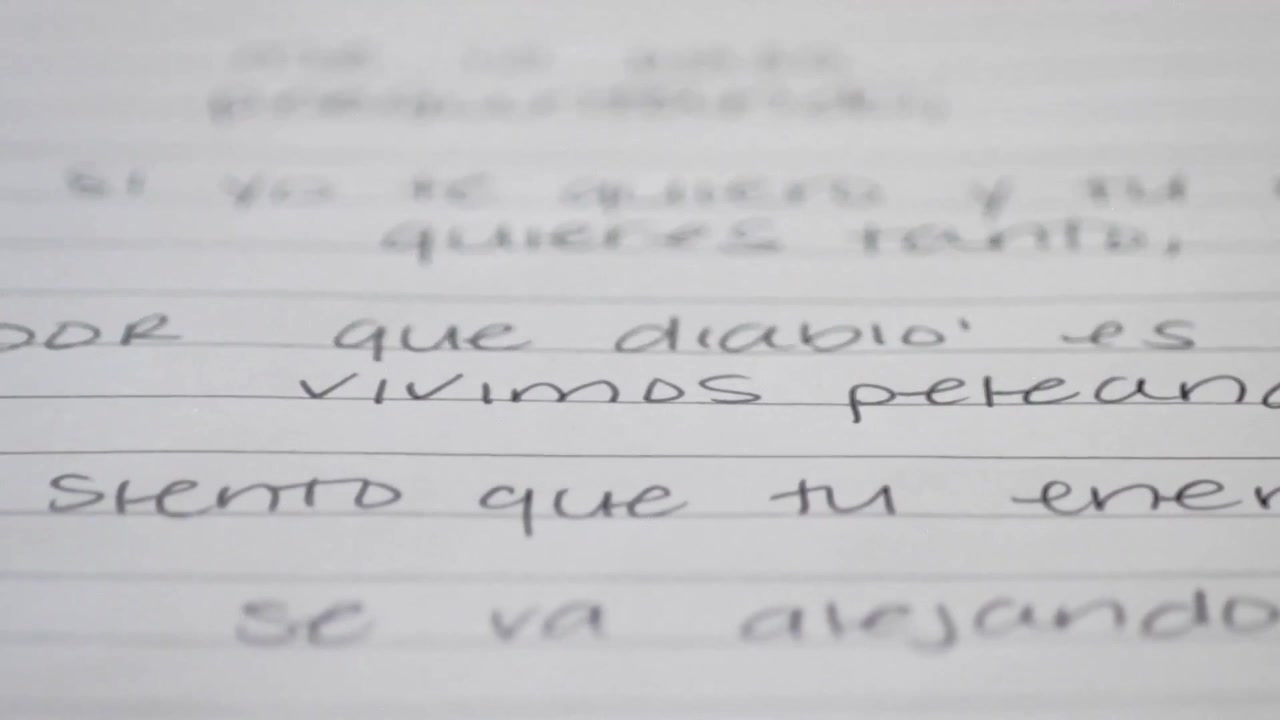 si yo te quiero y tu
quieres tanto,
por que diablo' es
vivimos pelean
siento que tu ener
se va alejando